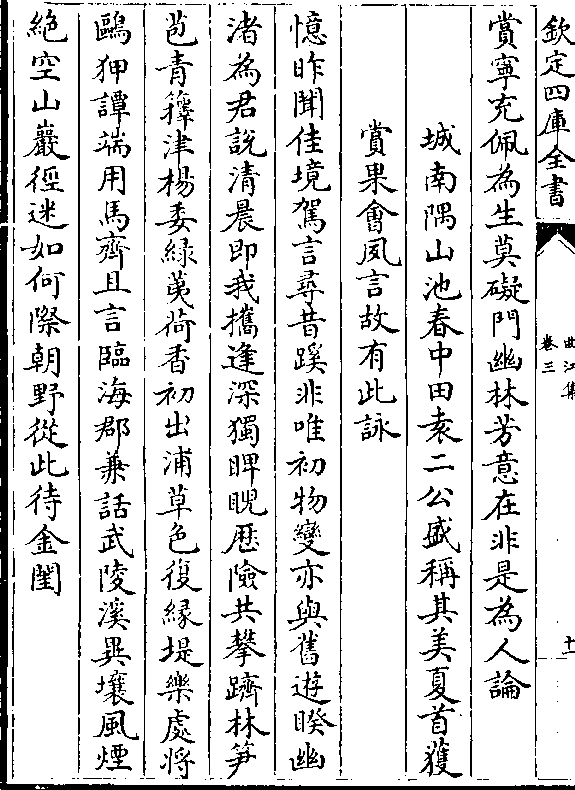 欽定四庫全書
曲江集
卷三
十一
賞寧充佩為生莫礙門幽林芳意在非是為人論
城南隅山池春中田袁二公盛稱其美夏首獲
賞果會夙言故有此詠
憶昨聞佳境駕言尋昔蹊非唯初物變亦與舊遊睽幽
渚為君說清晨即我攜逢深獨睥睨歷險共攀躋林笋
苞青籜津楊委緑荑荷香初出浦草色復緣堤樂處將
鷗狎譚端用馬齊且言臨海郡兼話武陵溪異壤風煙
絶空山巖徑迷如何際朝野從此待金閨